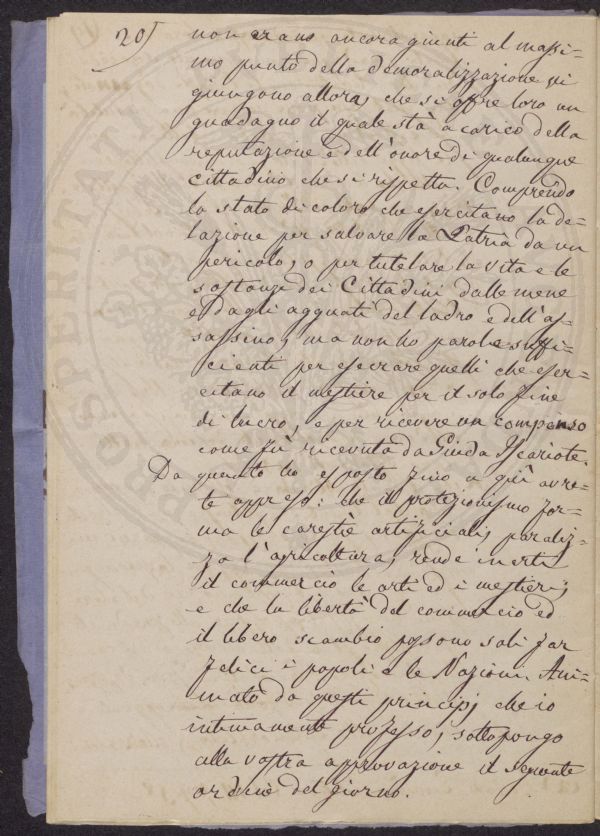 20)
non erano ancora giunti al massi-
mo punto della demoralizzazione vi
giungono allora, che si offre loro un
guadagno il quale stà a carico della
reputazione e dell'onore di qualunque
Cittadino che si rispetta. Comprendo
lo stato di coloro che esercitano la de-
lazione per salvare la Patria da un
pericolo, o per tutelare la vita e le
sostanze dei Cittadini dalle mene
e dagli agguati del ladro e dell'as-
sassino, ma non ho parole suffi-
cienti per esecrare quelli che eser-
citano il mestiere per il solo fine
di lucro, e per ricevere un compenso
come fù ricevuto da Giuda Iscariote.
Da quanto ho esposto fino a quì avre-
te appreso: che il protezionismo for-
ma le carestie artificiali, paraliz-
za l'agricoltura, rende inerti
il commercio le arti ed i mestieri;
e che la libertà del commercio ed
il libero scambio possono soli far
felici i popoli e le Nazioni. Ani-
mato da questi principj che io
intimamente professo, sottopongo
alla vostra approvazione il seguente
ordine del giorno.
PROSPERITATI